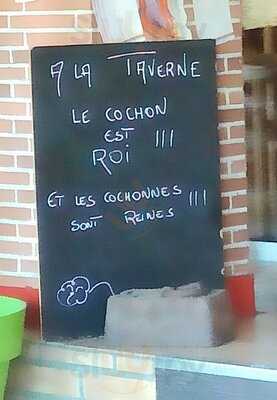 A LA TAVERNE
LE COCHON
EST !!!
ROI
ET LES COCHONNES !!!
SONT REINES